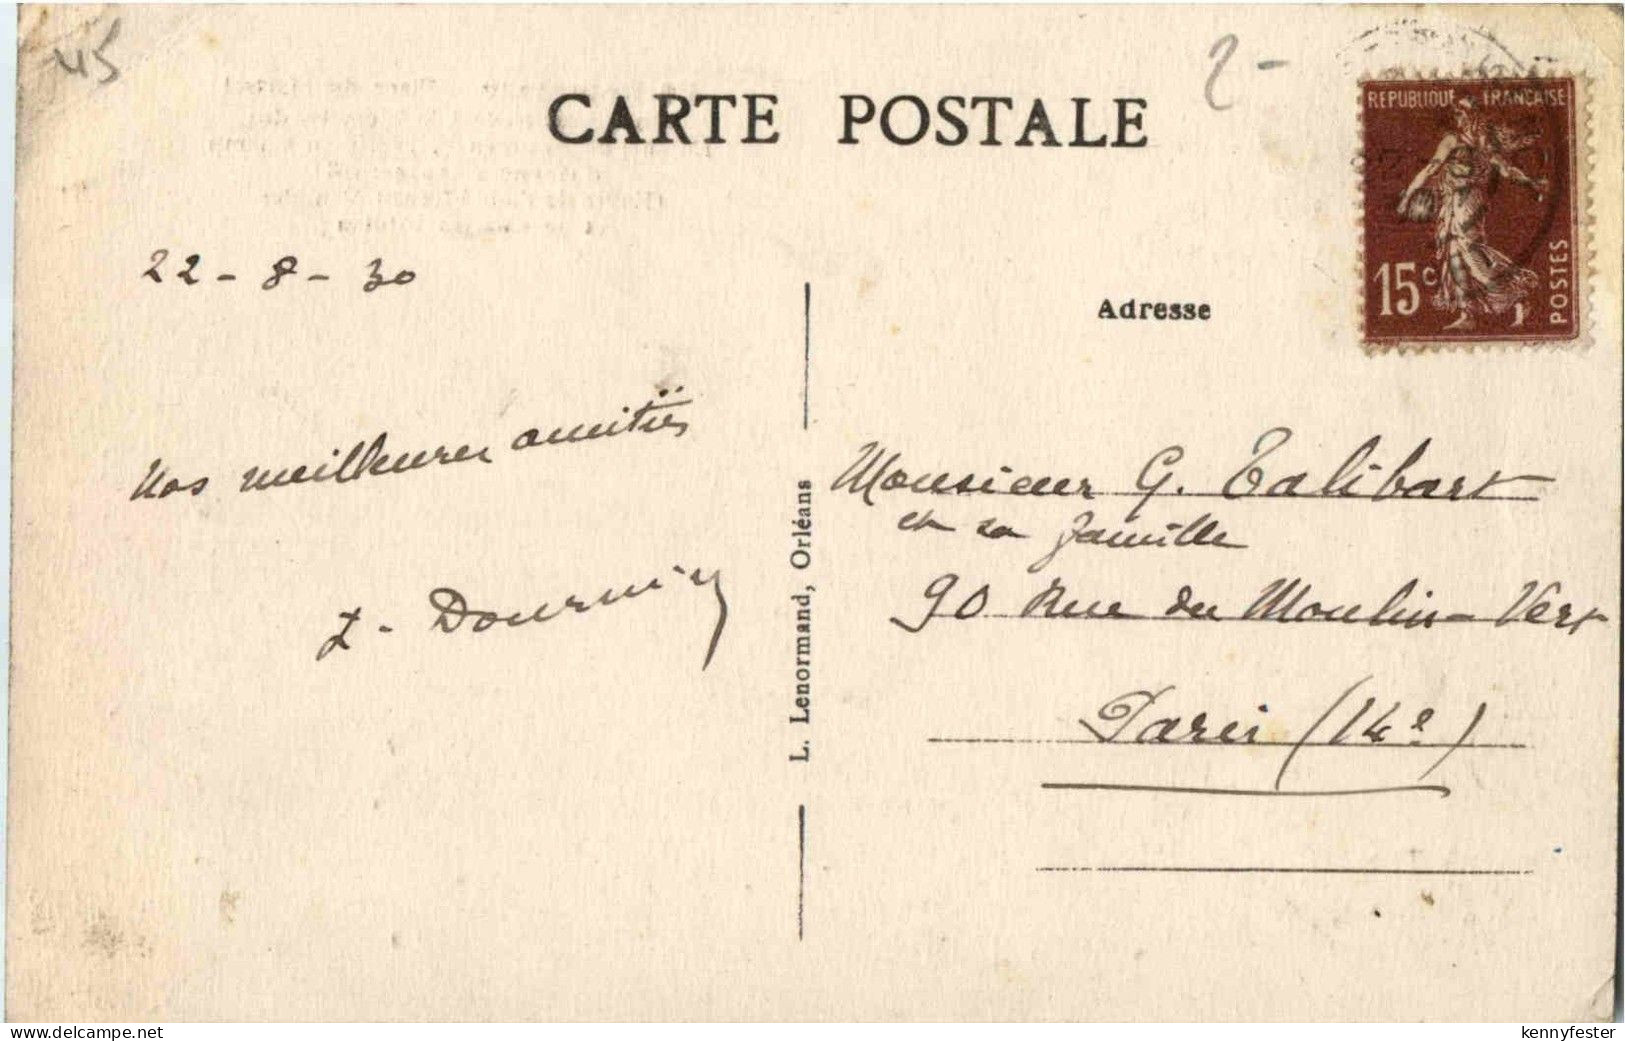 45
2-
CARTE POSTALE
REPUBLIQUE FRANCAISE
15c
POSTES
22-8-30
Adresse
Nos meilleures amitiés
L. Lenormand, Orléans
Monsieur G. Talibart
et sa famille
90 Rue du Moulin-Vert
Paris (14e)
www.delcampe.net
kennyfester